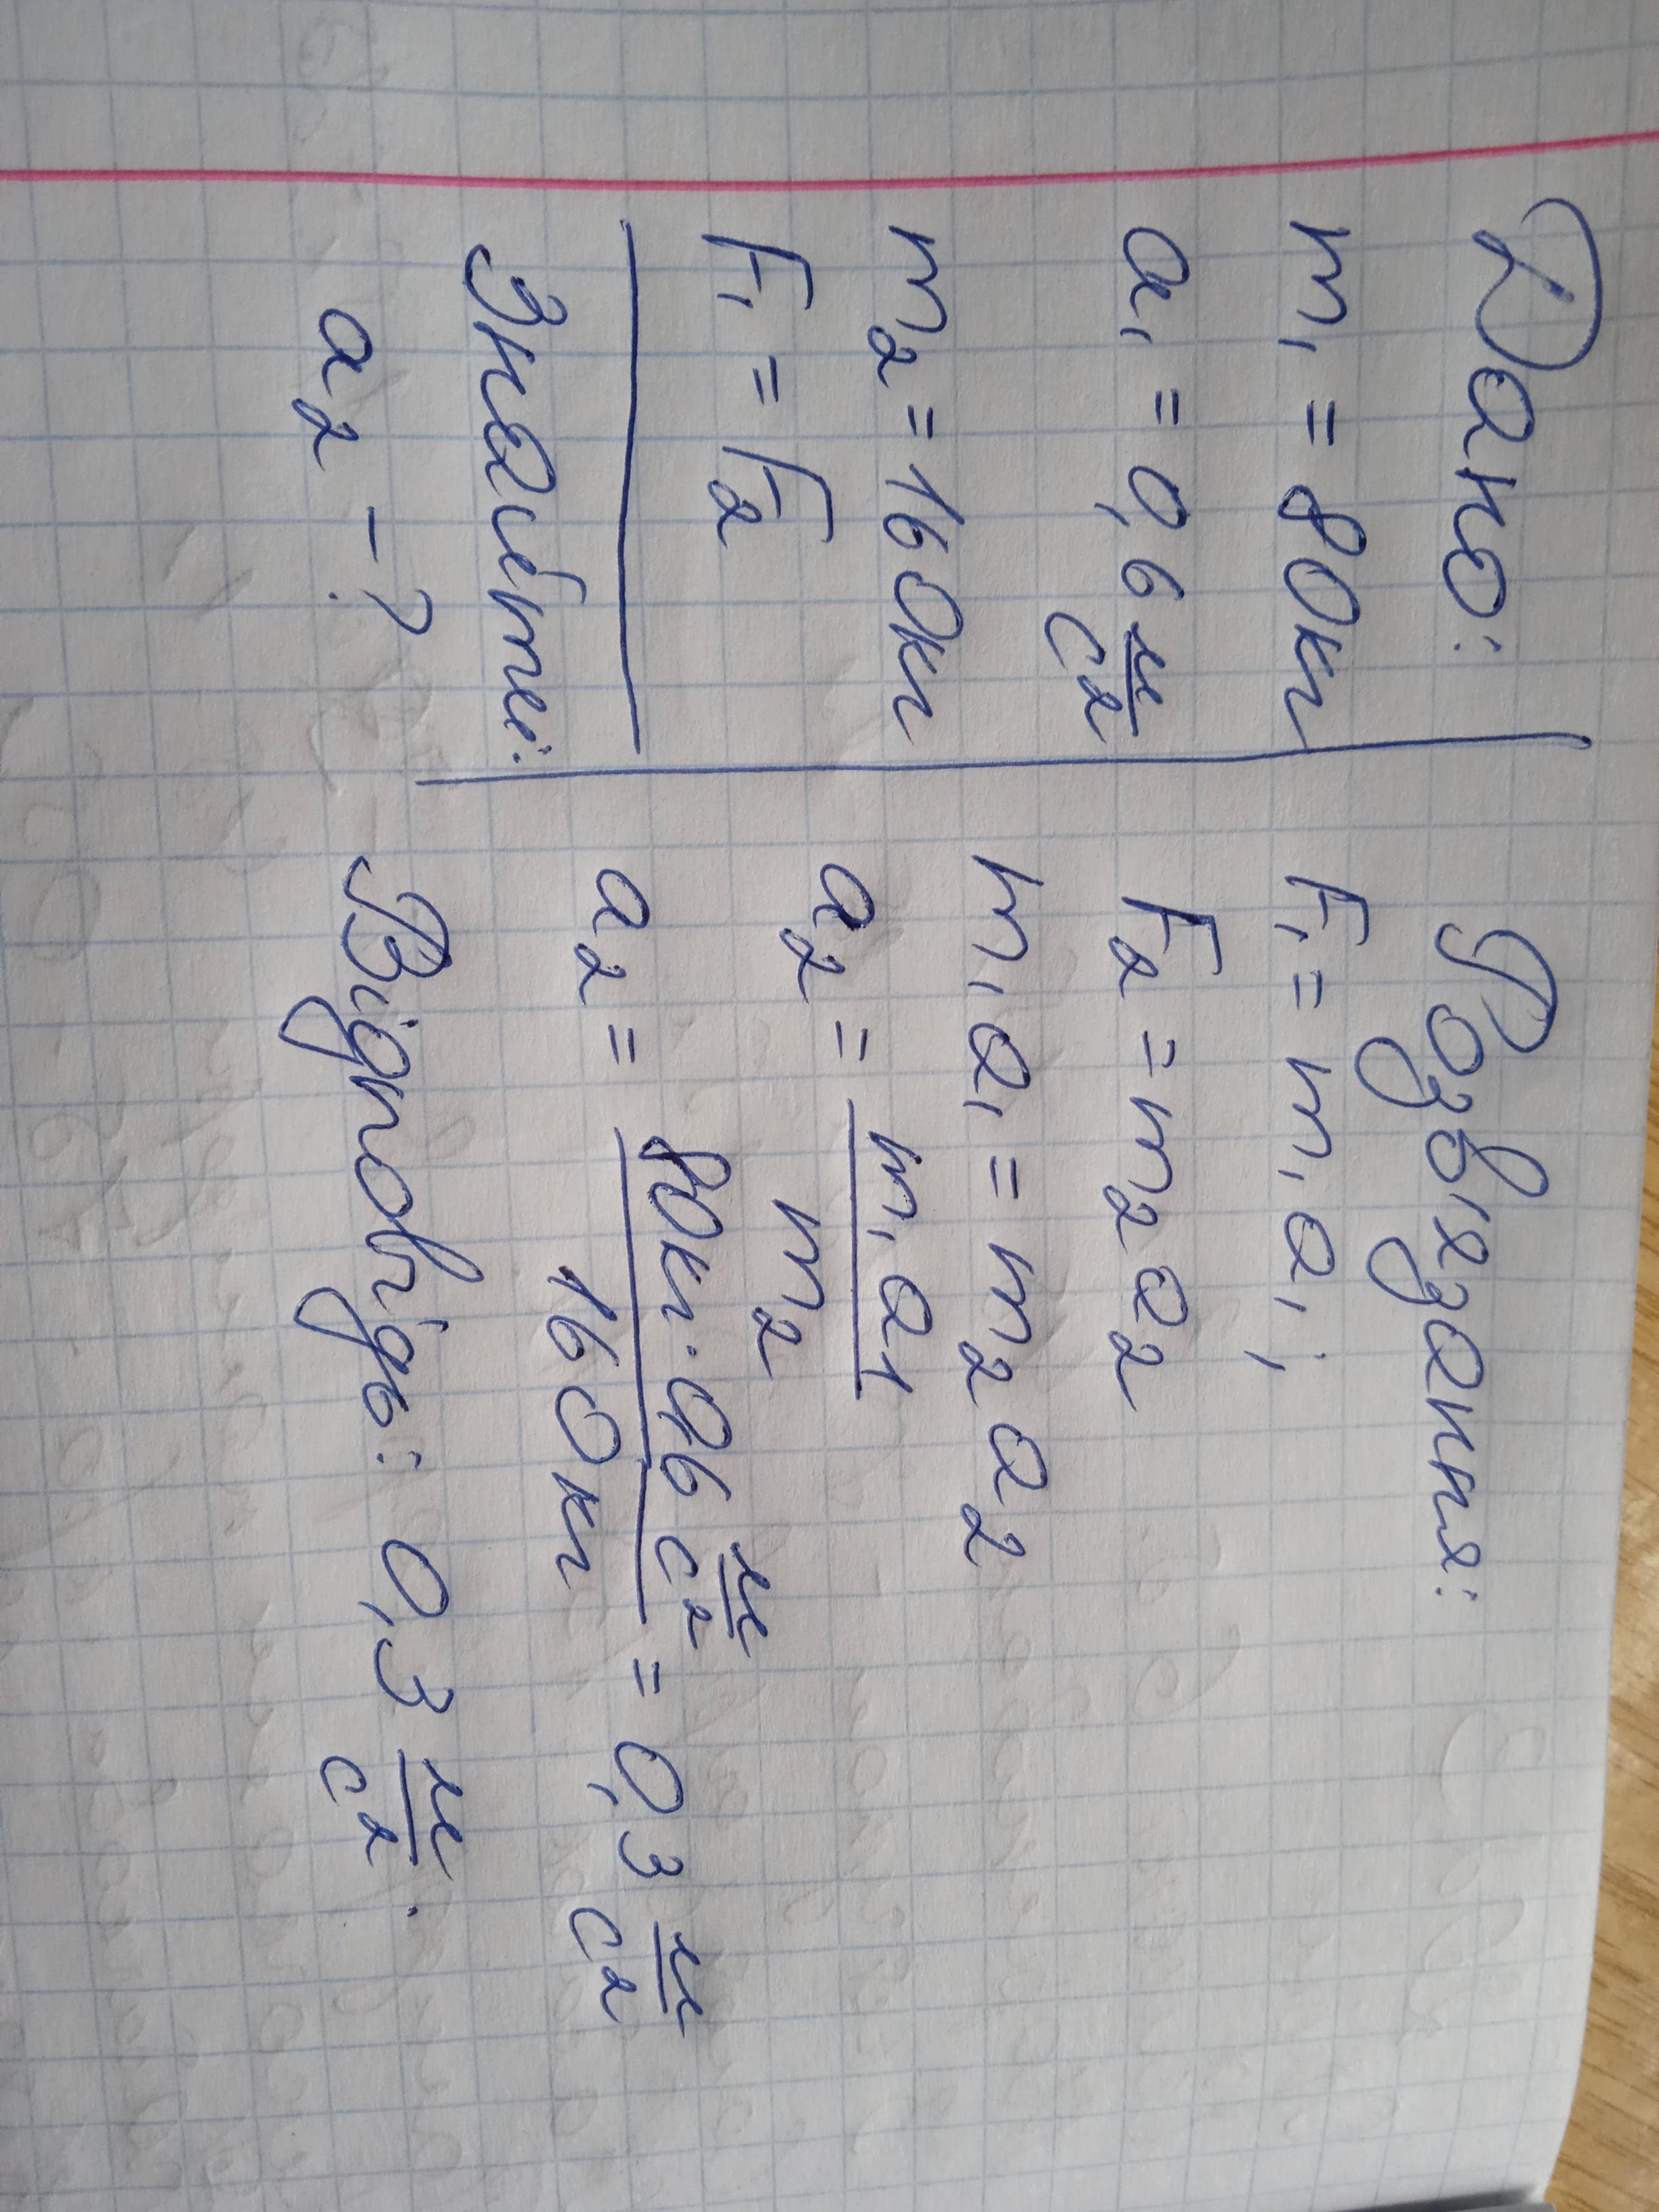 Дано:
m₁ = 80кг
a₁ = 0,6 м/с²
m₂ = 160кг
F₁ = F₂
Знайти:
a₂ - ?
Розв'язання:
F₁ = m₁a₁;
F₂ = m₂a₂
m₁a₁ = m₂a₂
a₂ = m₁a₁/m₂
a₂ = 80кг·0,6 м/с² / 160кг = 0,3 м/с²
Відповідь: 0,3 м/с².